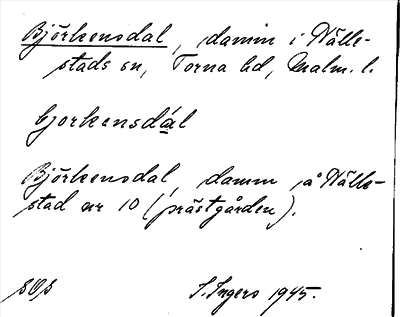 Björkensdal, damm i Hälle-
stads sn, Torna hd, Malm. l.
bjorkensdál
Björkensdal, damm på Hälle-
stad nr 10 (prästgården).
S. Ingers 1945.